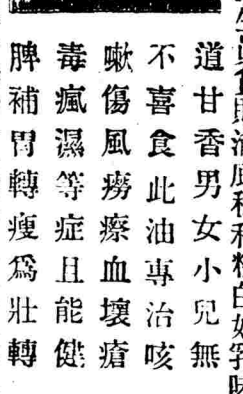 白如乳味
道甘香男女小兒無
不喜食此油專治咳
嗽傷風癆瘵血壞瘡
毒瘋濕等症且能健
脾補胃轉瘦爲壯轉